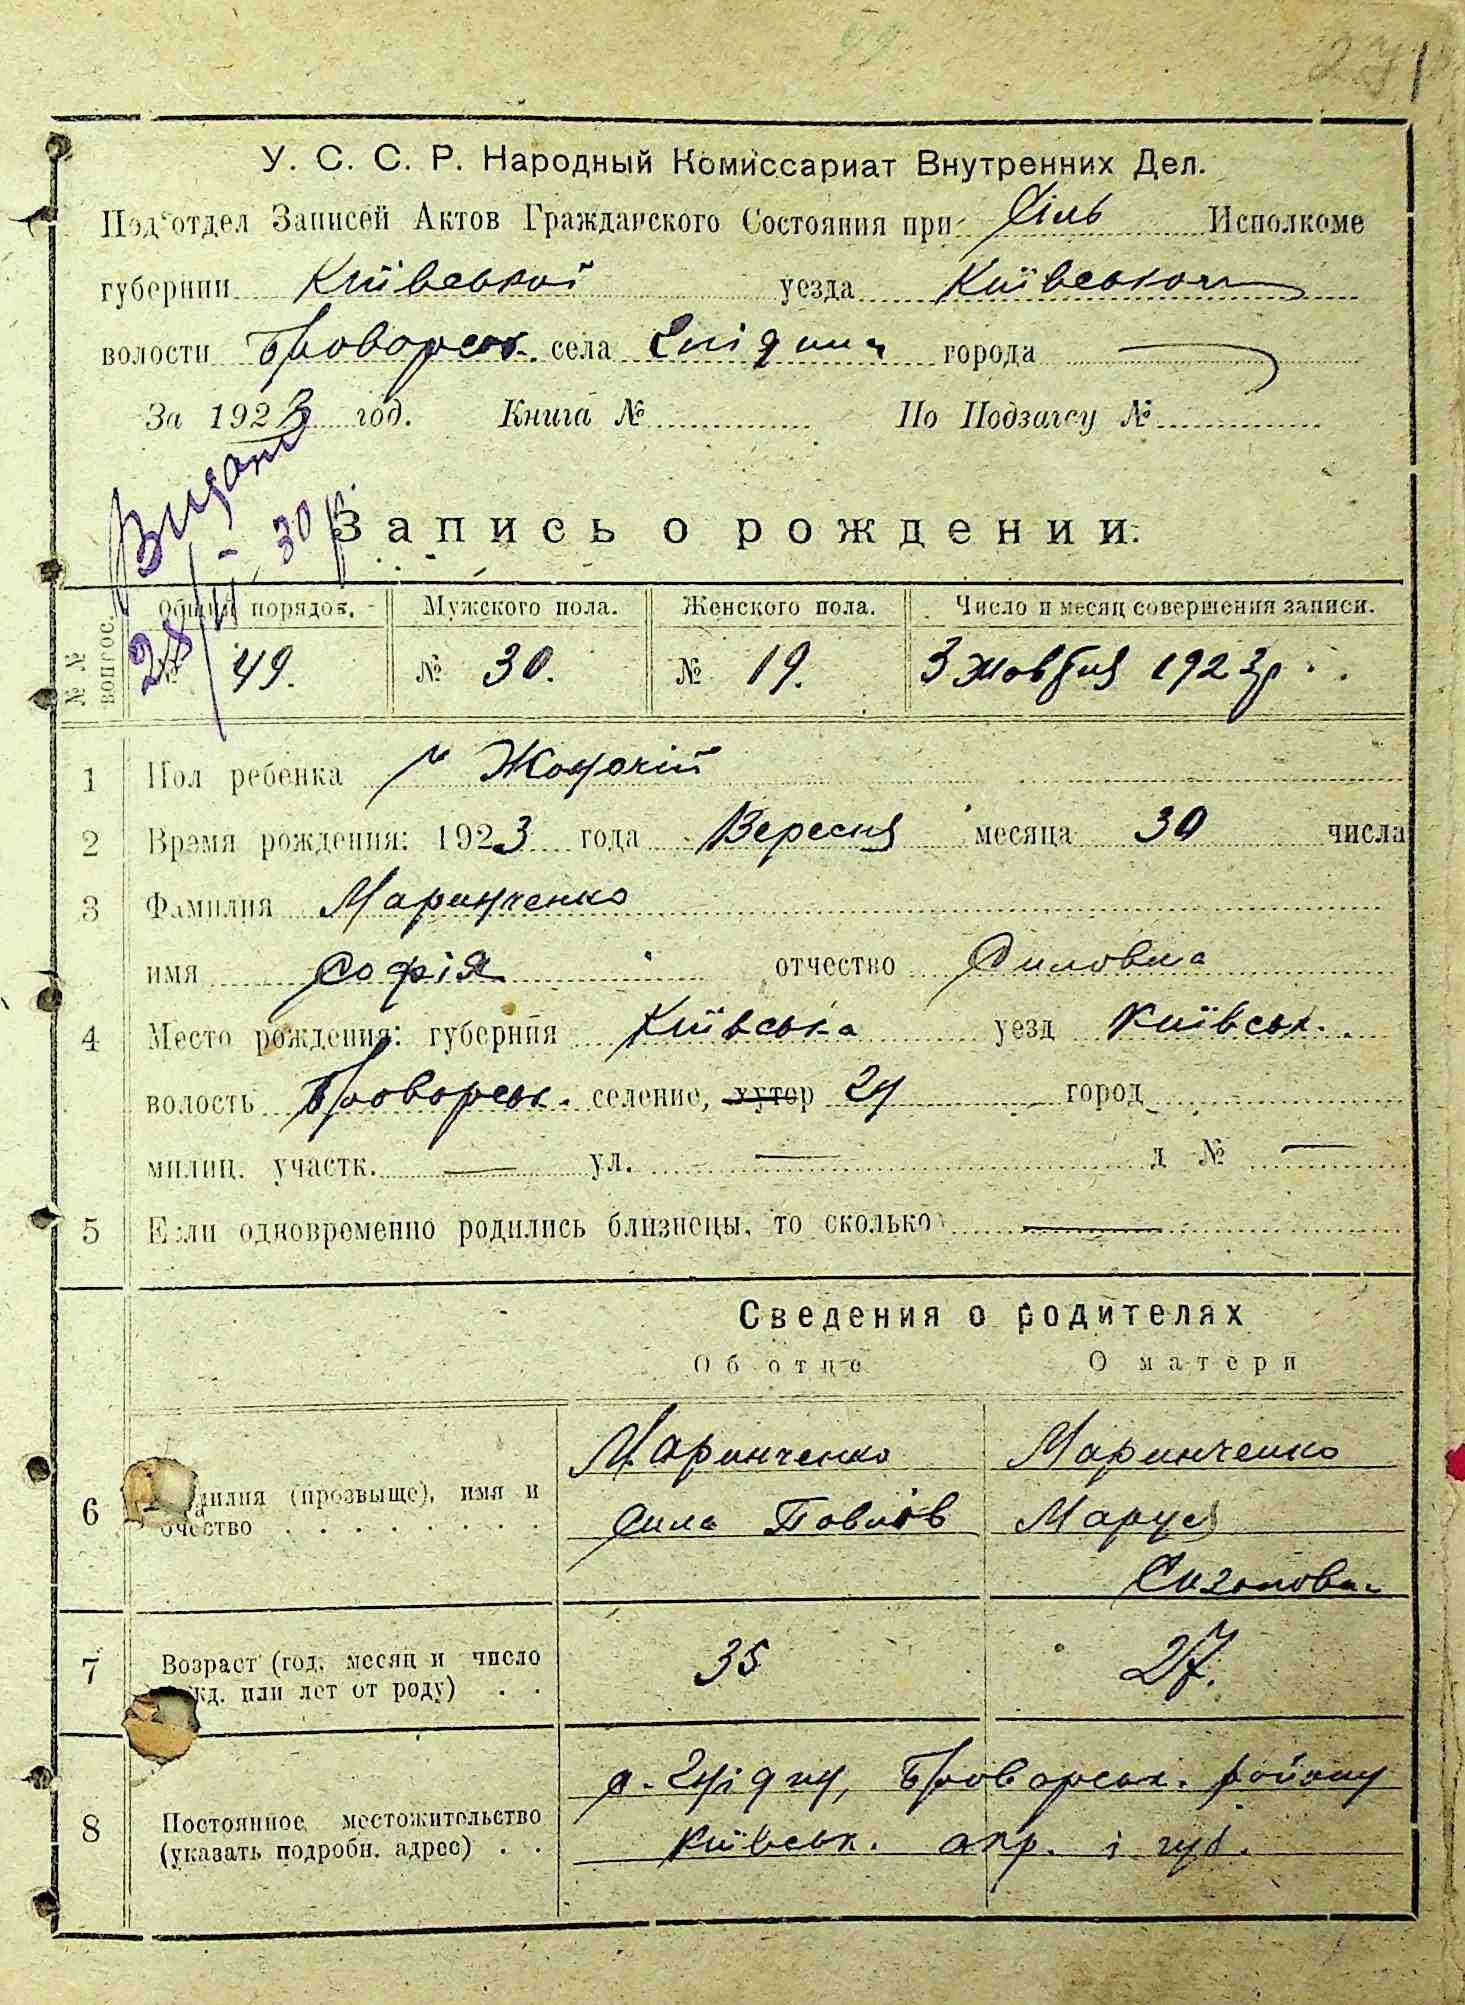 У. С. С. Р. Народный Комиссариат Внутренних Дел.
Под'отдел Записей Актов Гражданского Состояния при Сіль Исполкоме
губернии Київської уезда Київської
волости Броворськ. села города —
За 1923 год. Книга № По Подзагсу №
Видано
28/ 30 р.
Запись о рождении.
№ № вопрос. Общий порядок. Мужского пола. Женского пола. Число и месяц совершения записи.
№ 49. № 30. № 19. 3 жовтня 1923 р.
1 Пол ребенка Жіночій
2 Время рождения: 1923 года Вересня месяца 30 числа
3 Фамилия Маринченко
имя Софія отчество Силовна
4 Место рождения: губерния Київська уезд Київськ.
волость Броворськ. селение, хутор город
милиц. участк. — ул. — д № —
5 Если одновременно родились близнецы, то сколько —
Сведения о родителях
Об отце О матери
6 Фамилия (прозвыще), имя и отчество
Маринченко Маринченко
Сила Павлов Маруся
Сазоновна
7 Возраст (год, месяц и число рожд. или лет от роду) 35 27.
8 Постоянное местожительство (указать подробн. адрес)
Броварськ. району
Київськ. окр. і губ.